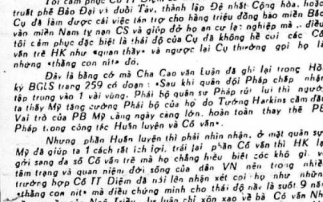 Tôi cảm phục Cố TT Diệm
truất phế Bảo Đại vì dưới Tây, thành lập Đệ nhất Cộng hòa, hoặc
Cụ đã làm được cái việc tán trợ cho hàng triệu đồng bào miền Bắc
vào miền Nam tỵ nạn CS và giúp đỡ họ an cư lạc nghiệp mà
tôi cảm phục đặc biệt là thái độ của Cụ đã không hề coi các Cố
vấn trẻ HK như «người thầy» và ngược lại Cụ thường gọi họ là
những «thằng con nít» đó.
Đây là bằng cớ mà Cha Cao văn Luận đã ghi lại trong Hồ
ký BGLS trang 259 có đoạn : «Sau khi quân đội Pháp chấp nhật
tập trung vào 1 vài vùng. Phái bộ quân sự Pháp rút lui thì người
ta thấy Mỹ tăng cường Phái bộ của họ do Tướng Harkins cầm đầu
Vai trò của PB Mỹ càng ngày càng lớn, hoàn toàn thay thế PB
Pháp trong công tác Huấn luyện và Cố vấn».
Nhưng phần Huấn luyện thì phải nhìn nhận, ở mặt quân sự
Mỹ đã giúp ta 1 cách rất ích lợi, trái lại phần Cố vấn thì HK lại
gửi sang đa số Cố vấn trẻ mà họ chẳng hiểu biết các khó gì về
tâm trạng và quan niệm đời sống của dân VN nên trong nhiều
trường hợp Cố TT Diệm đã nổi lên nhận xét coi họ như những
«thằng con nít» mà điều chứng minh cho thái độ nầy là suốt 9 năm
dư luận chỉ xôn xao về bà Cố vấn Nh